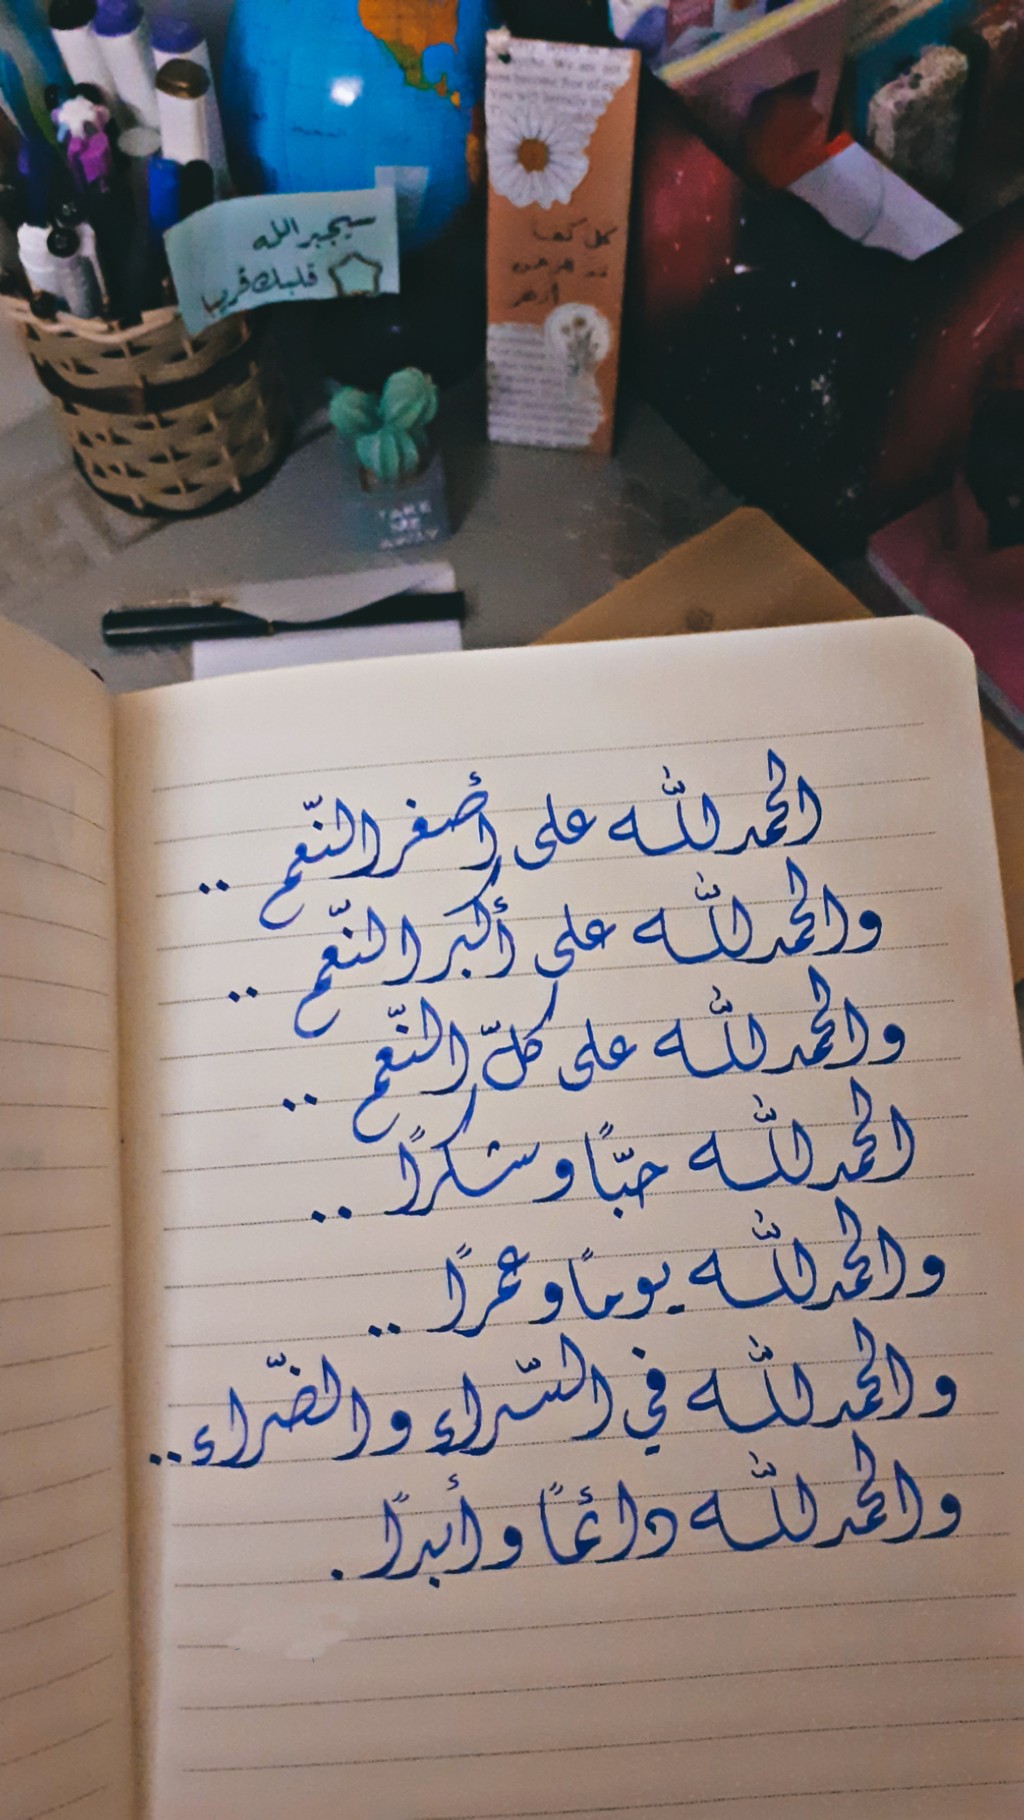 سيجبر الله
قلبك قريبا
TAKE
ME
AWAY
الحمد للّٰه على أصغر النّعم ..
والحمد للّٰه على أكبر النّعم ..
والحمد للّٰه على كلّ النّعم ..
الحمد للّٰه حبّاً وشكراً ..
والحمد للّٰه يوماً وعمراً ..
والحمد للّٰه في السّراء والضّراء ..
والحمد للّٰه دائماً وأبداً .